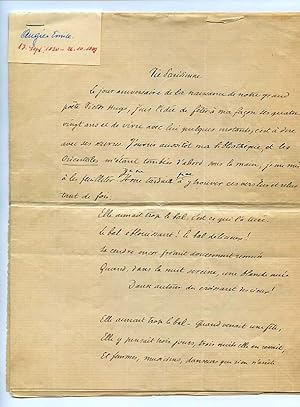 Augier Emile
17 Sep 1820 - 26.10.1889
Vie Parisienne
Le jour anniversaire de la naissance de notre grand
poète Victor Hugo, j'eus l'idée de fêter à ma façon ses quatre
vingts ans et de vivre avec lui quelques instants, c'est à dire
avec ses œuvres. J'ouvris aussitôt ma bibliothèque, et les
Orientales m'étant tombées d'abord sous la main, je me mis
à les feuilleter. Je ne tardai à y trouver ces vers lus et relus
tant de fois.
Elle aimait trop le bal, c'est ce qui l'a tuée.
Le bal éblouissant! le bal délicieux!
Sa cendre encor frémit doucement remuée
Quand, dans la nuit sereine, une blanche nuée
Danse autour du croissant des cieux!
Elle aimait trop le bal - Quand venait une fête,
Elle y pensait trois jours, trois nuits elle en rêvait,
Et femmes, musiciens, danseurs que rien n'arrête